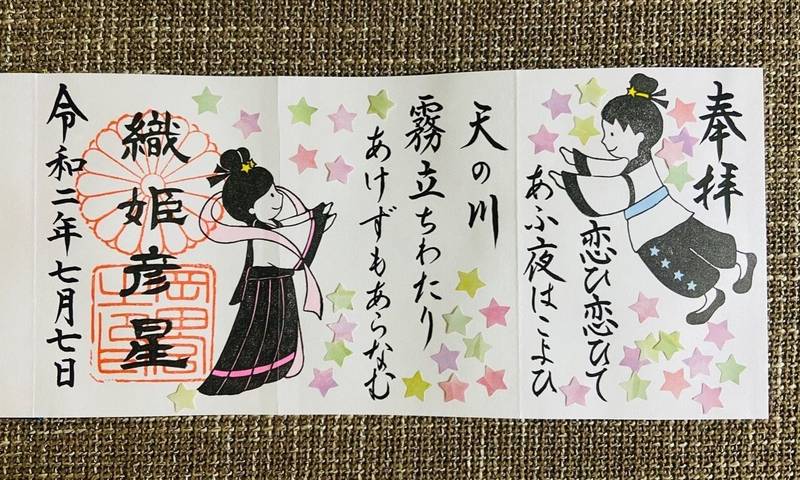 奉拝
恋ひ恋ひて
あふ夜はこよひ
天の川
霧立ちわたり
あけずもあらなむ
織姫彦星
令和二年七月七日